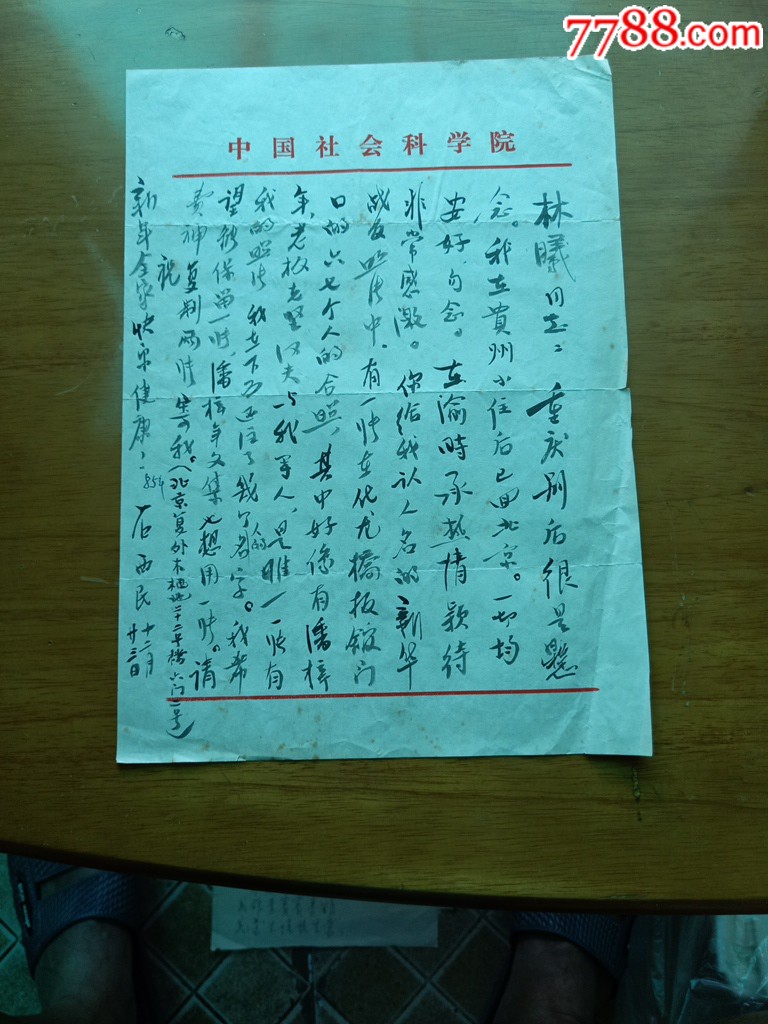 7788.com
中国社会科学院
林曦同志：重庆别后很是悬
念。我在贵州小住后已回北京。一切均
安好，勿念。在渝时承热情款待
非常感激。你给我认人名的新华
战友照片中，有一张在化龙桥板
口的六七个人的合照，其中好像有潘梓
年，老板
我的照片，我在下面还注了几个人的名字。我希
望能保留一张，潘梓年文集也想用一张。请
费神复制两张寄我。(北京复外木樨地二十二号楼六门一号)
祝
新年全家快乐健康！
石西民
十二月
廿三日